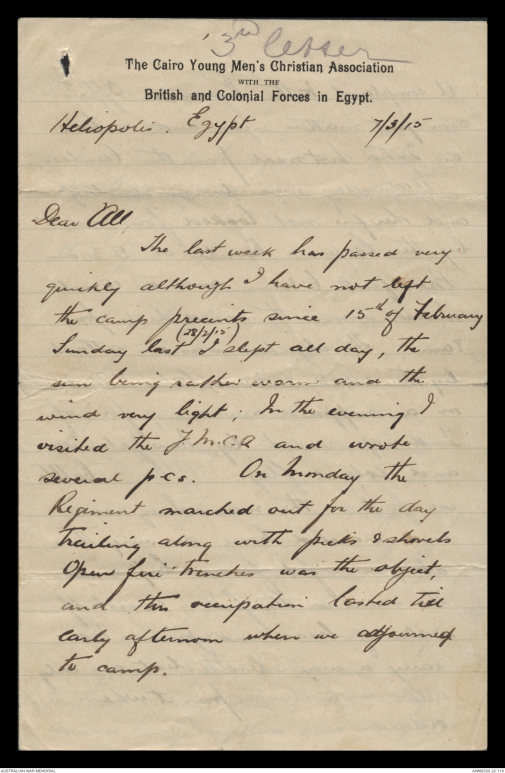 '3rd letter
The Cairo Young Men's Christian Association
WITH THE
British and Colonial Forces in Egypt.
Heliopolis. Egypt 7/3/15
Dear All,
The last week has passed very
quickly although I have not left
the camp precints since 15th of February
(28/2/15)
Sunday last I slept all day, the
sun being rather warm and the
wind very light; In the evening I
visited the Y.M.C.A and wrote
several p.cs. On Monday the
Regiment marched out for the day
trailing along with picks & shovels
Open fire trenches was the object,
and this occupation lasted till
early afternoon when we adjourned
to camp.
AUSTRALIAN WAR MEMORIAL